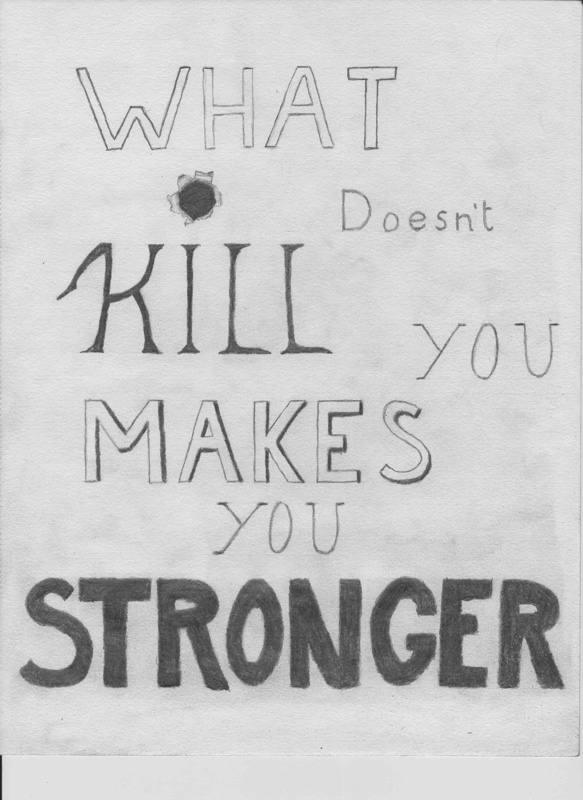 WHAT
Doesn't
KILL
YOU
MAKES
YOU
STRONGER